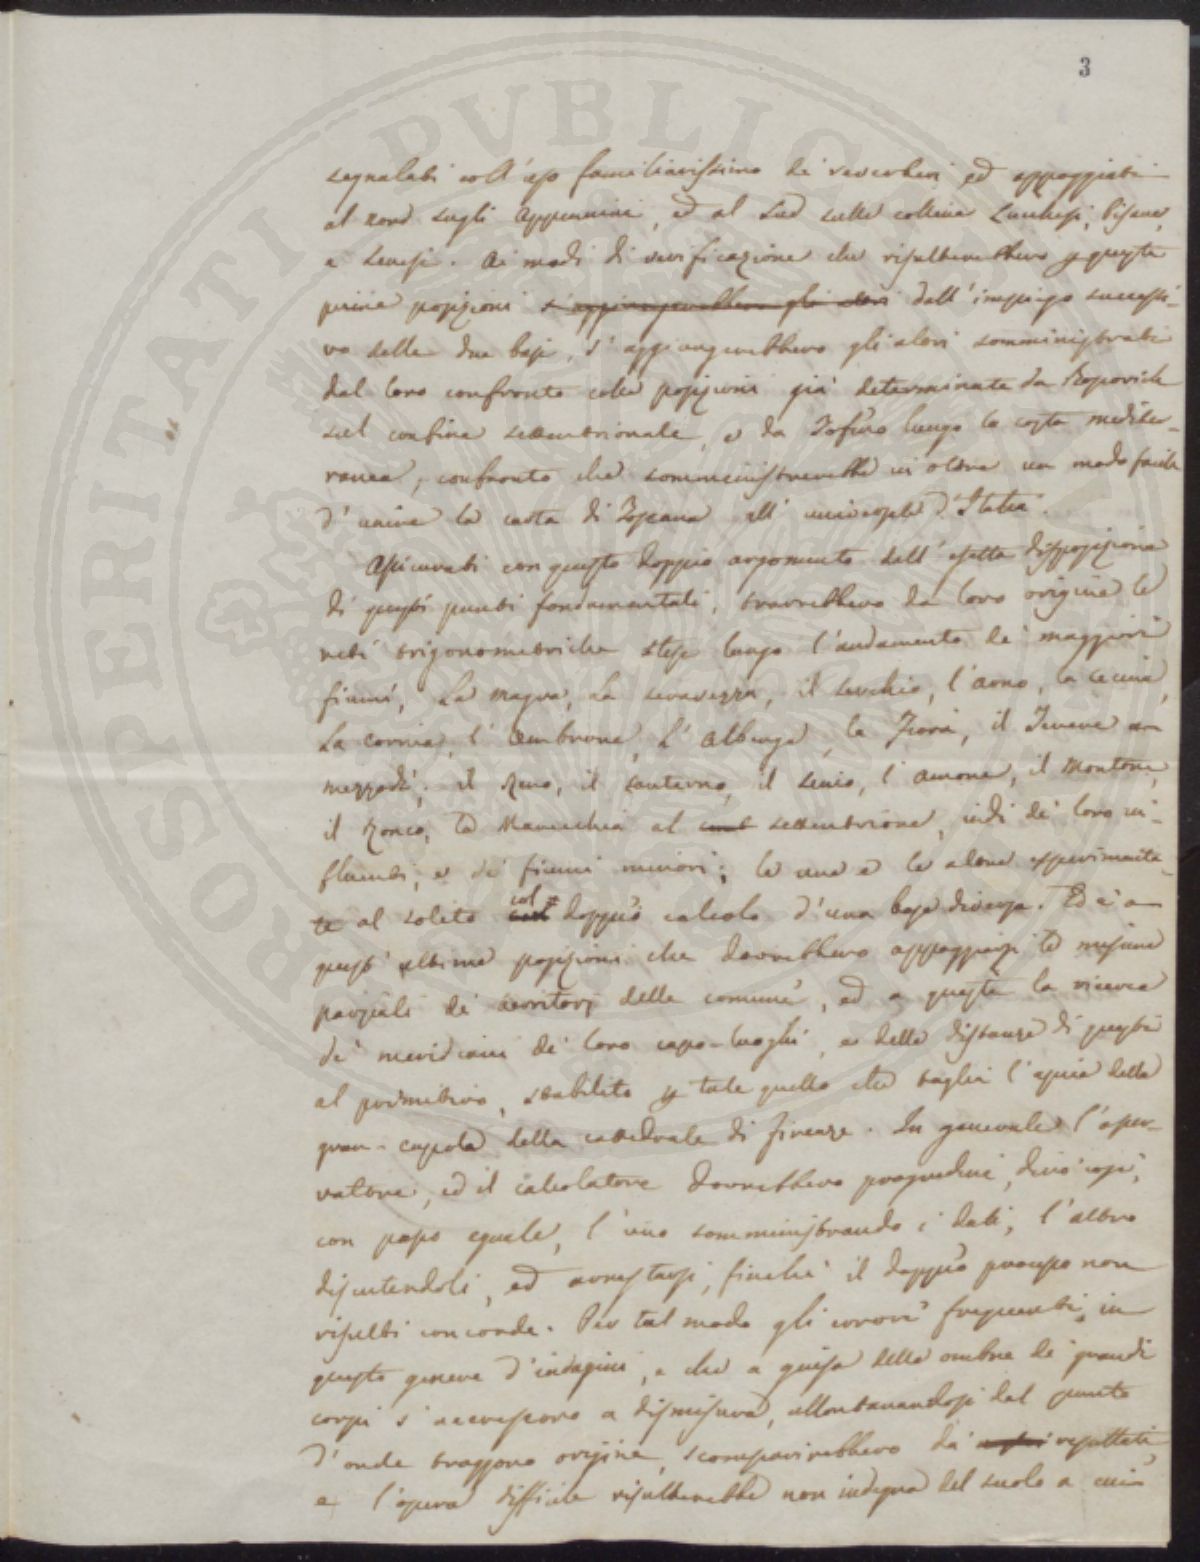 3
segnalati coll'uso familiarissimo de' riverberi ed appoggiati
al nord sugli Appennini, ed al Sud sulle colline Lucchesi, Pisane,
e Senesi. Ai modi di verificazione che risulterebbero p queste
prime posizioni s'aggiungerebbero gli altri dall'impiego successi-
vo delle due basi, s'aggiungerebbero gli altri somministrati
dal loro confronto colle posizioni già determinate da Boscovich
sul confine settentrionale, e da Tofino lungo la costa mediter-
ranea, confronto che somministrerebbe in oltre un modo facile
d'unire la carta di Toscana all'universale d'Italia.
Assicurati con questo doppio argomento dell'esatta disposizione
di questi punti fondamentali, trarrebbero da loro origine le
reti trigonometriche stese lungo l'andamento de' maggiori
fiumi, la Magra, la Seravezza, il Serchio, l'Arno, la Cecina,
la Cornia, l'Ombrone, l'Albegna, la Fiora, il Tevere a
mezzodì; il Reno, il Santerno, il Senio, l'Amone, il Montone,
il Ronco, la Marecchia al settentrione, indi de' loro in-
fluenti, e de' fiumi minori; le une e le altre esperimenta-
te al solito col doppio calcolo d'una base diversa. Ed è a
quest'ultime posizioni che dovrebbero appoggiarsi le misure
parziali de' territorj delle comuni, ed a queste la ricerca
de' meridiani de' loro capo-luoghi, e delle distanze di questi
al primitivo, stabilito p tale quello che tagli l'apice della
gran-cupola della cattedrale di Firenze. In generale l'osser-
vatore, ed il calcolatore dovrebbero progredire, dirò così,
con passo eguale, l'uno somministrando i dati, l'altro
discutendoli, ed arrestarsi, finchè il doppio processo non
risulti concorde. Per tal modo gli errori frequenti in
questo genere d'indagini, e che a guisa delle ombre de' grandi
corpi s'accrescono a dismisura, allontanandosi dal punto
d'onde traggono origine, scomparirebbero da' resultati
e l'opera difficile risulterebbe non indegna del suolo a cui